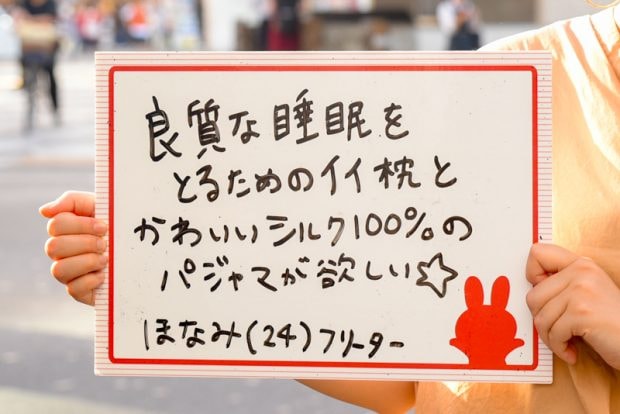 良質な睡眠を
とるためのイイ枕と
かわいいシルク100%の
パジャマが欲しい☆
ほなみ(24)フリーター